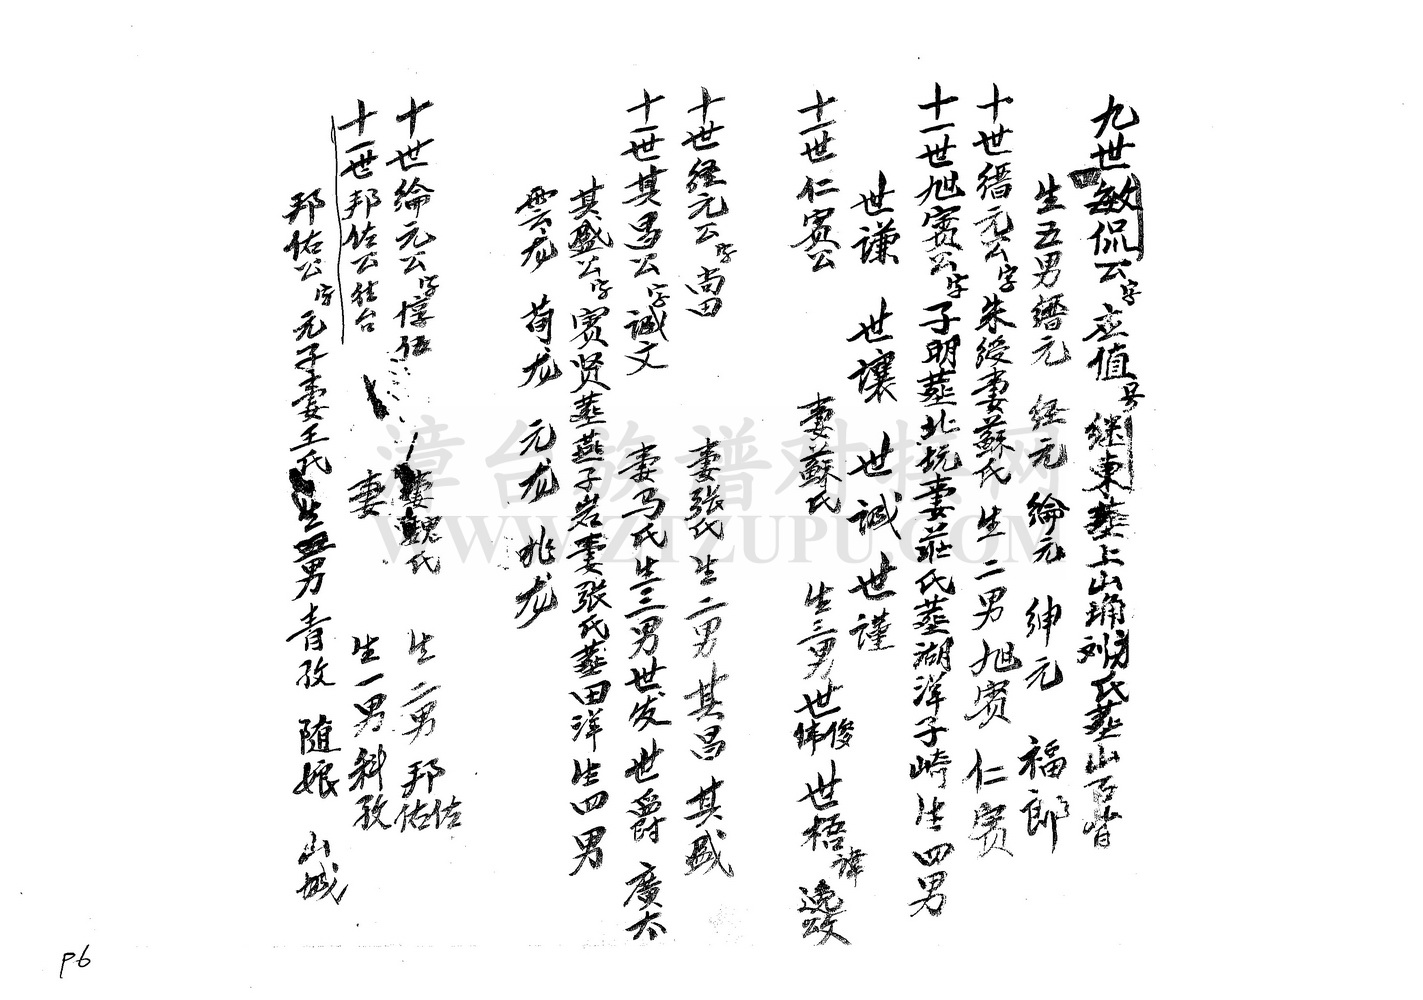 九世敏侃公字立值号继東葬上山埔刘氏葬山石背
生五男縉元 经元 綸元 紳元 福郎
十世縉元公字朱绶妻蘇氏生二男旭宾 仁宾
十一世旭宾公字子明葬北坑妻莊氏葬湖洋子崎生四男
世谦 世讓 世誠 世謹
十一世仁宾公 妻蘇氏 生三男世俊 世偉 世梧諱逸
十世经元公字尚田 妻張氏生二男其昌 其盛
十一世其昌公字诚文 妻马氏生三男世发 世爵 廣太
其盛公字宾贤葬燕子岩妻张氏葬田洋生四男
雲龙 荀龙 元龙 兆龙
十世綸元公字惇 妻魏氏 生二男邦佐 邦佑
十一世邦佐公往台 妻 生一男科孜
邦佑公字元子妻王氏生男青孜 随娘 山城
漳台族谱对接网
WWW.ZTZUPU.COM
P6